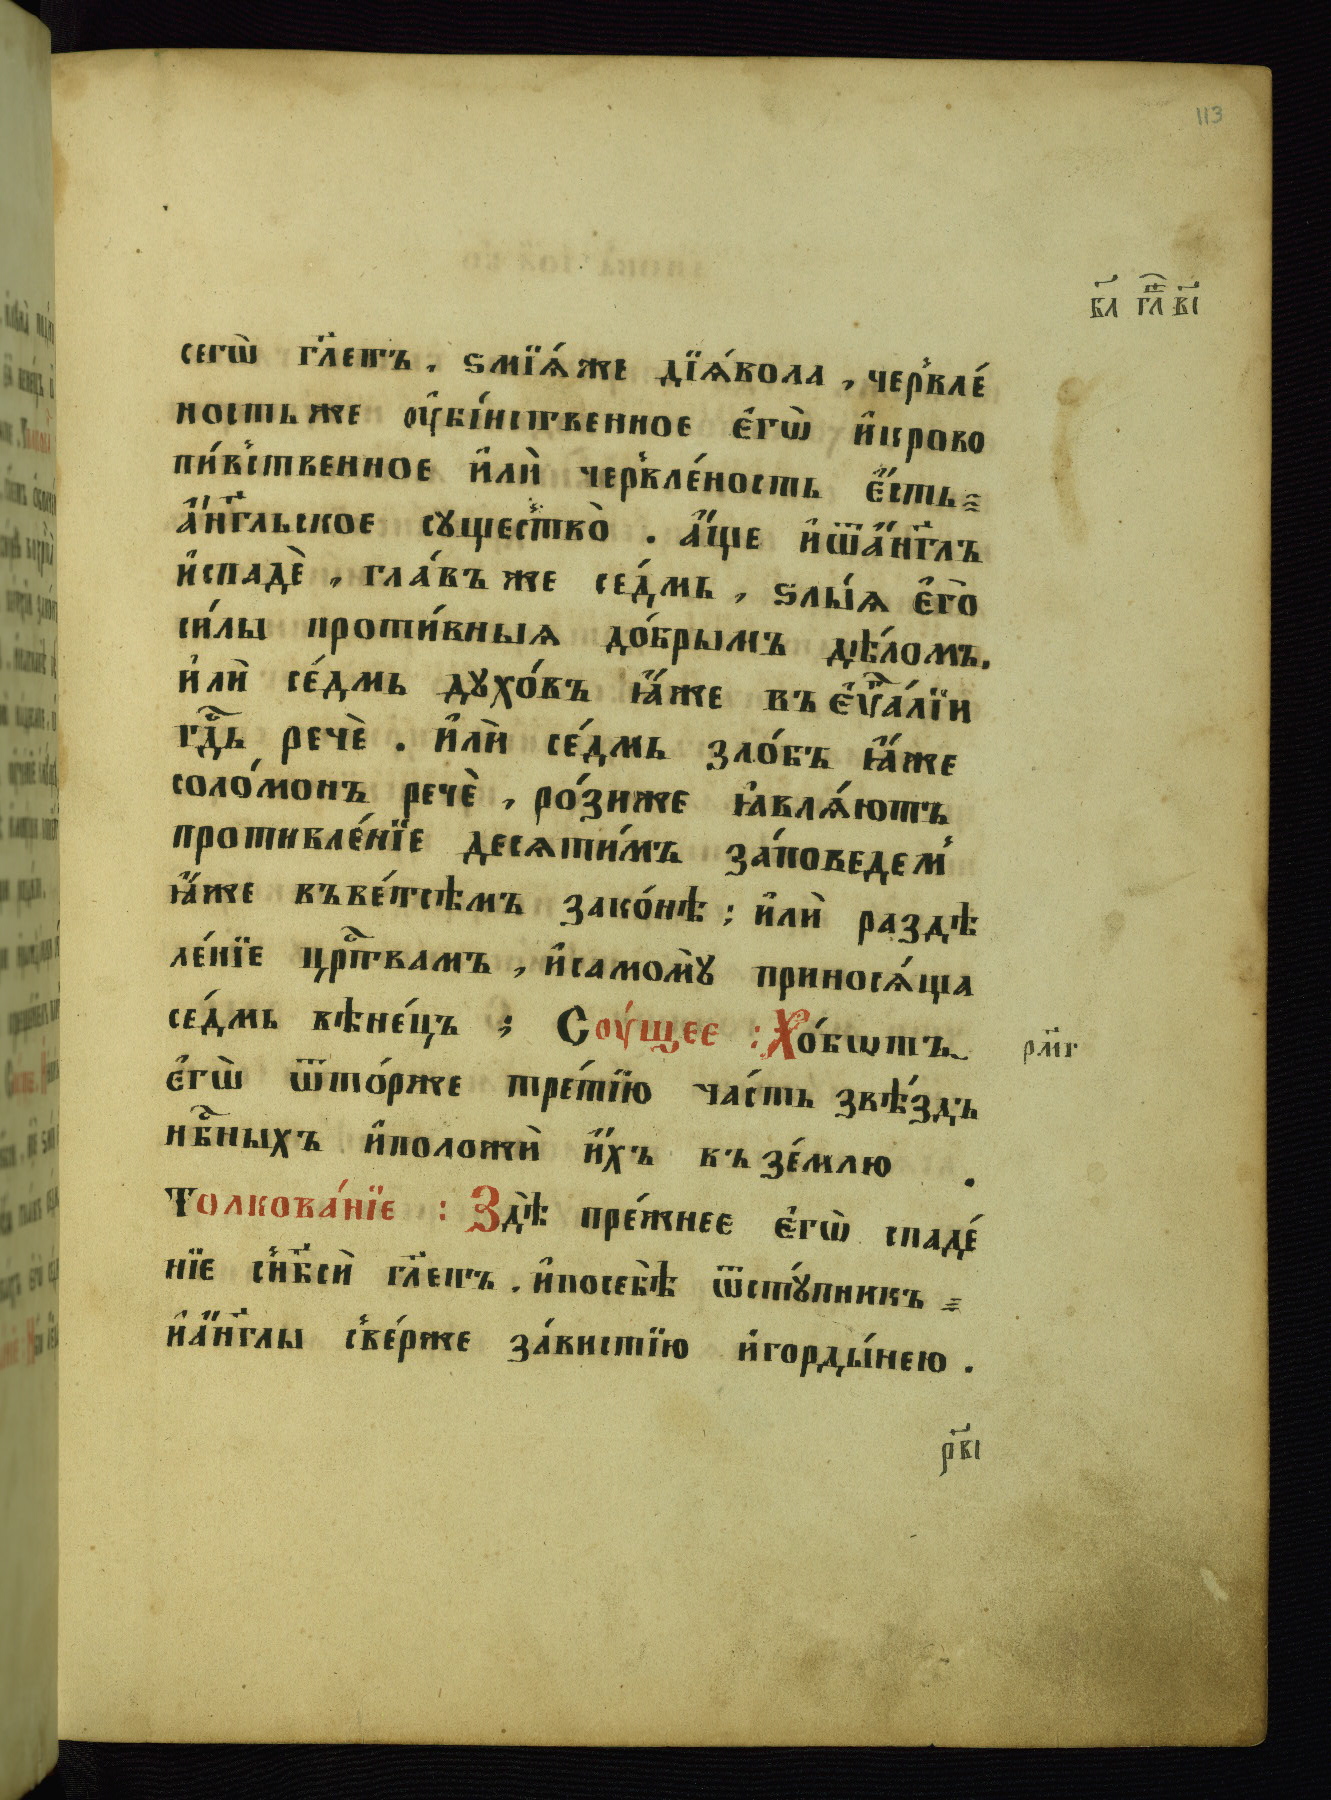 113
в҃л гл҃ в҃і
сегѡ̀ гл҃етъ , ѕмїѧ́же дїѧ́вола , черв̾ле́
ностьже ᲂу҆бі́нственное є҆гѡ̀ и҆крово
пи́в̾ственное и҆лѝ черв̾ле́ность є҆́сть
а҆́нг҃льское сꙋщест̾во̀ . а҆́ще и҆ѿа҆́нг҃лъ
и҆спадѐ , гла́въ же се́дмь , ѕлы́ѧ є҆гѡ̀
си́лы проти́вныѧ до́брымъ дѣ́ломъ.
и҆лѝ се́дмь дꙋхо́въ ꙗ҆́же въ є҆ѵⷢ҇а́лїи
гдⷭ҇ь речѐ . и҆лѝ се́дмь зло́бъ ꙗ҆́же
соло́монъ речѐ , ро́зиже ꙗ҆влѧ́ютъ
противле́нїе десѧти́мъ за́поведем̾
ꙗ҆́же въве́тсѣмъ зако́нѣ ; и҆лѝ раздѣ
ле́нїе црⷭ҇твамъ , и҆самомꙋ̀ приносѧ́ща
се́дмь вѣне́цъ ; Сᲂу́щее : Хо́бѡтъ
є҆гѡ̀ ѿто́рже тре́тїю ча́сть звѣ́здъ
нбⷭ҇ныхъ и҆положѝ и҆́хъ къ зе́млю .
Толкова́нїе : Здѣ̀ пре́жнее є҆гѡ̀ спаде́
нїе с̾нб҃сѝ гл҃етъ . и҆посебѣ̀ ѿстꙋ́пникъ
и҆а҆́нг҃лы с̾ве́рже за́вистїю и҆горды́нею .
рм҃г
рв҃і